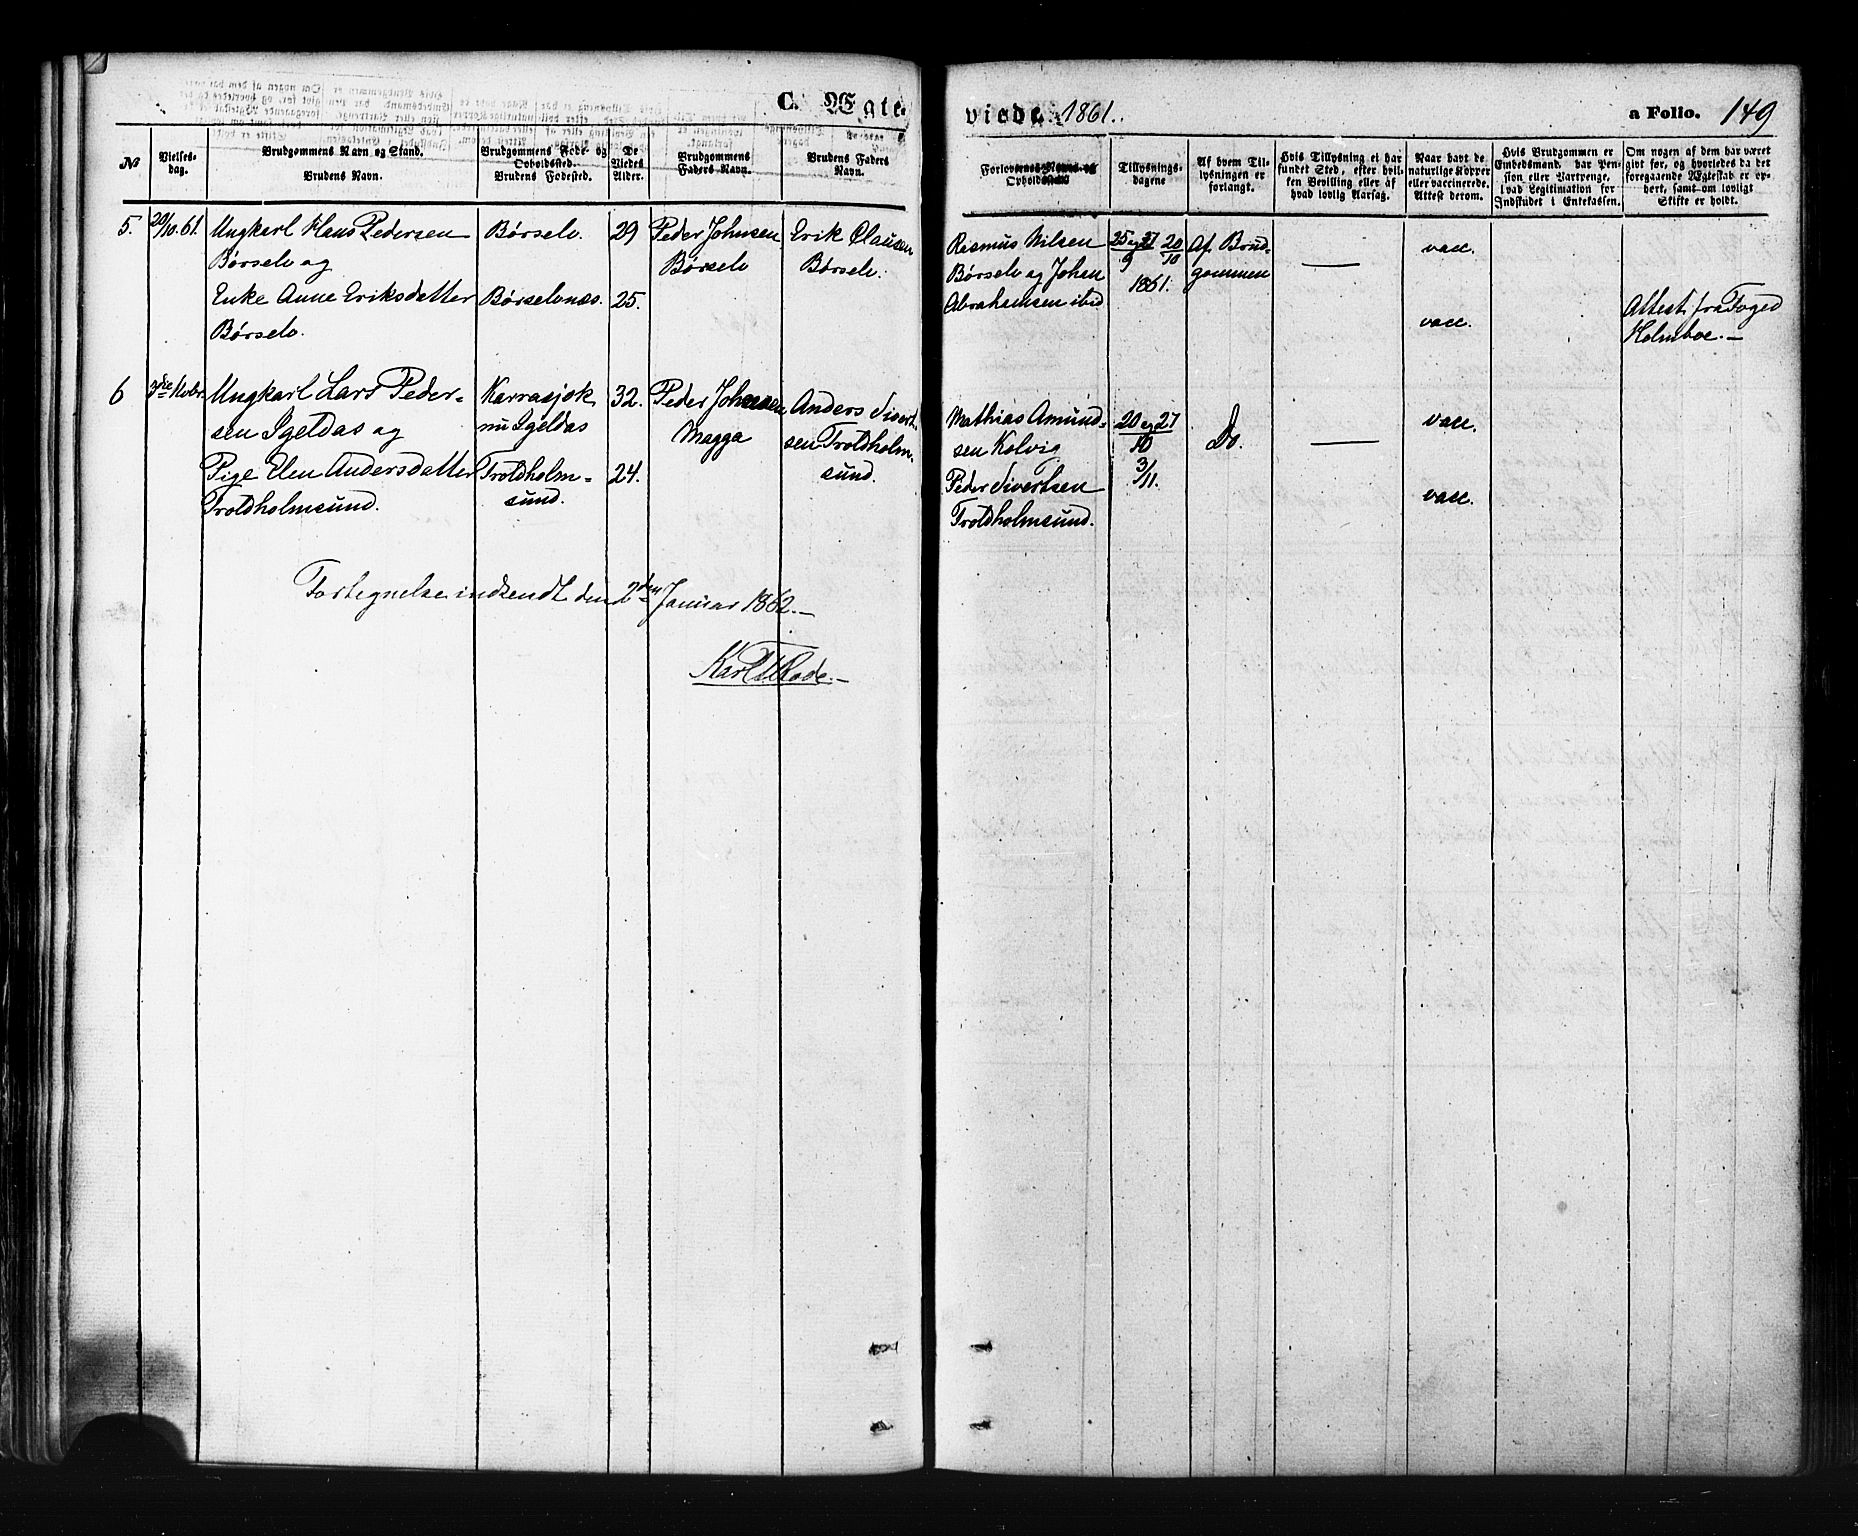 C. Ægte-
viede 1861.
a Folio. 149
No
Vielses-
dag.
Brudgommens Navn og Stand.
Brudens Navn.
Brudgommens Føde- og
Opholdssted.
Brudens Fødested.
De
Viedes
Alder.
Brudgommens
Faders Navn.
Brudens Faders
Navn.
Forlovernes Navne og
Opholdssted.
Tillysnings-
dagene
Af hvem Til-
lysningen er
forlangt.
Hvis Tillysning ei har
fundet Sted, efter hvil-
ken Bevilling eller af
hvad lovlig Aarsag.
Naar havt de
naturlige Kopper
eller vaccinerede.
Attest derom.
Hvis Brudgommen er
Embedsmand, har Pen-
sion eller Vartpenge,
hvad Legitimation for
Indskudet i Enkekassen.
Om nogen af dem har været
gift før, og hvorledes da det
foregaaende Ægteskab er op-
hørt, samt om lovligt
Skifte er holdt.
5.
20/10.61.
Ungkarl Hans Pedersen
Børselv og
Enke Anne Eriksdatter
Børselv.
Børselv.
Børselvnæs.
29
25.
Peder Johnsen
Børselv
Erik Clausen
Børselv.
Rasmus Nilsen
Børselv og Johan
Abrahamsen ibid.
25 og 27 20
9 10
1861.
Af Brud-
gommen
—
vacc.
vacc.
Attest fra Foged
Holmboe.—
6
3die Novbr.
Ungkarl Lars Peder-
sen Igeldas og
Pige Elen Andersdatter
Troldholmsund.
Karrasjok
nu Igeldas
Troldholm-
sund.
32.
24.
Peder Johnsen
Magga
Anders Sivert-
sen Troldholm-
sund.
Mathias Amund-
sen Kolvig
Peder Sivertsen
Troldholmsund.
20 og 27
10
3/11.
Do.
—
vacc.
vacc.
Fortegnelse indsendt den 2den Januar 1862.—
Karl Rode.—